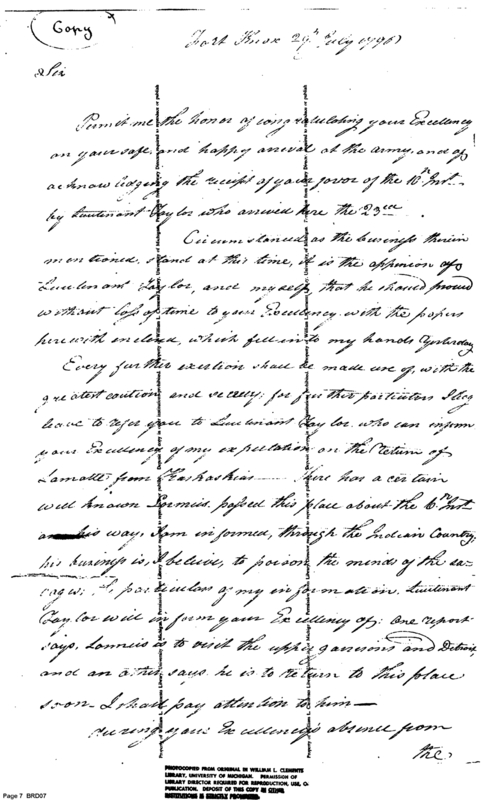 Copy
Fort Knox 29th July 1796
Sir
Permit me the honor of congratulating your Excellency
on your safe and happy arrival at the army, and of
acknowledging the receipt of your favor of the 16th Inst
by Lieutenant Taylor who arrived here the 23rd
Circumstanced as the business therein
mentioned, stand at this time, it is the oppinion of
Lieutenant Taylor, and myself, that he should proceed
without loss of time to your Excellency with the papers
herewith inclosed, which fell into my hands Yesterday
Every further exertion shall be made use of, with the
greatest caution and secrecy; for further particulars I beg
leave to refer you to Lieutenant Taylor, who can inform
your Excellency of my expectation on the Return of
Lamotte from Kaskaskias There has a certain
well known Lormies, passed this place about the Inst
his way, I am informed, through the Indian Country;
his business is, I believe, to poison the minds of the sa-
vages; particulars of my information, Lieutenant
Taylor will inform your Excellency of: One report
says, Lormies is to visit the upper garrisons and Detroit,
and an other says he is to return to this place
soon - I shall pay attention to him -
during your Excellency's absence from
the
PHOTOCOPIED FROM ORIGINAL IN WILLIAM L. CLEMENTS
LIBRARY, UNIVERSITY OF MICHIGAN. PERMISSION OF
LIBRARY DIRECTOR REQUIRED FOR REPRODUCTION, USE, O
PUBLICATION. DEPOSIT OF THIS COPY IN OTHER
INSTITUTIONS IS STRICTLY PROHIBITED.
Page 7 BRD07